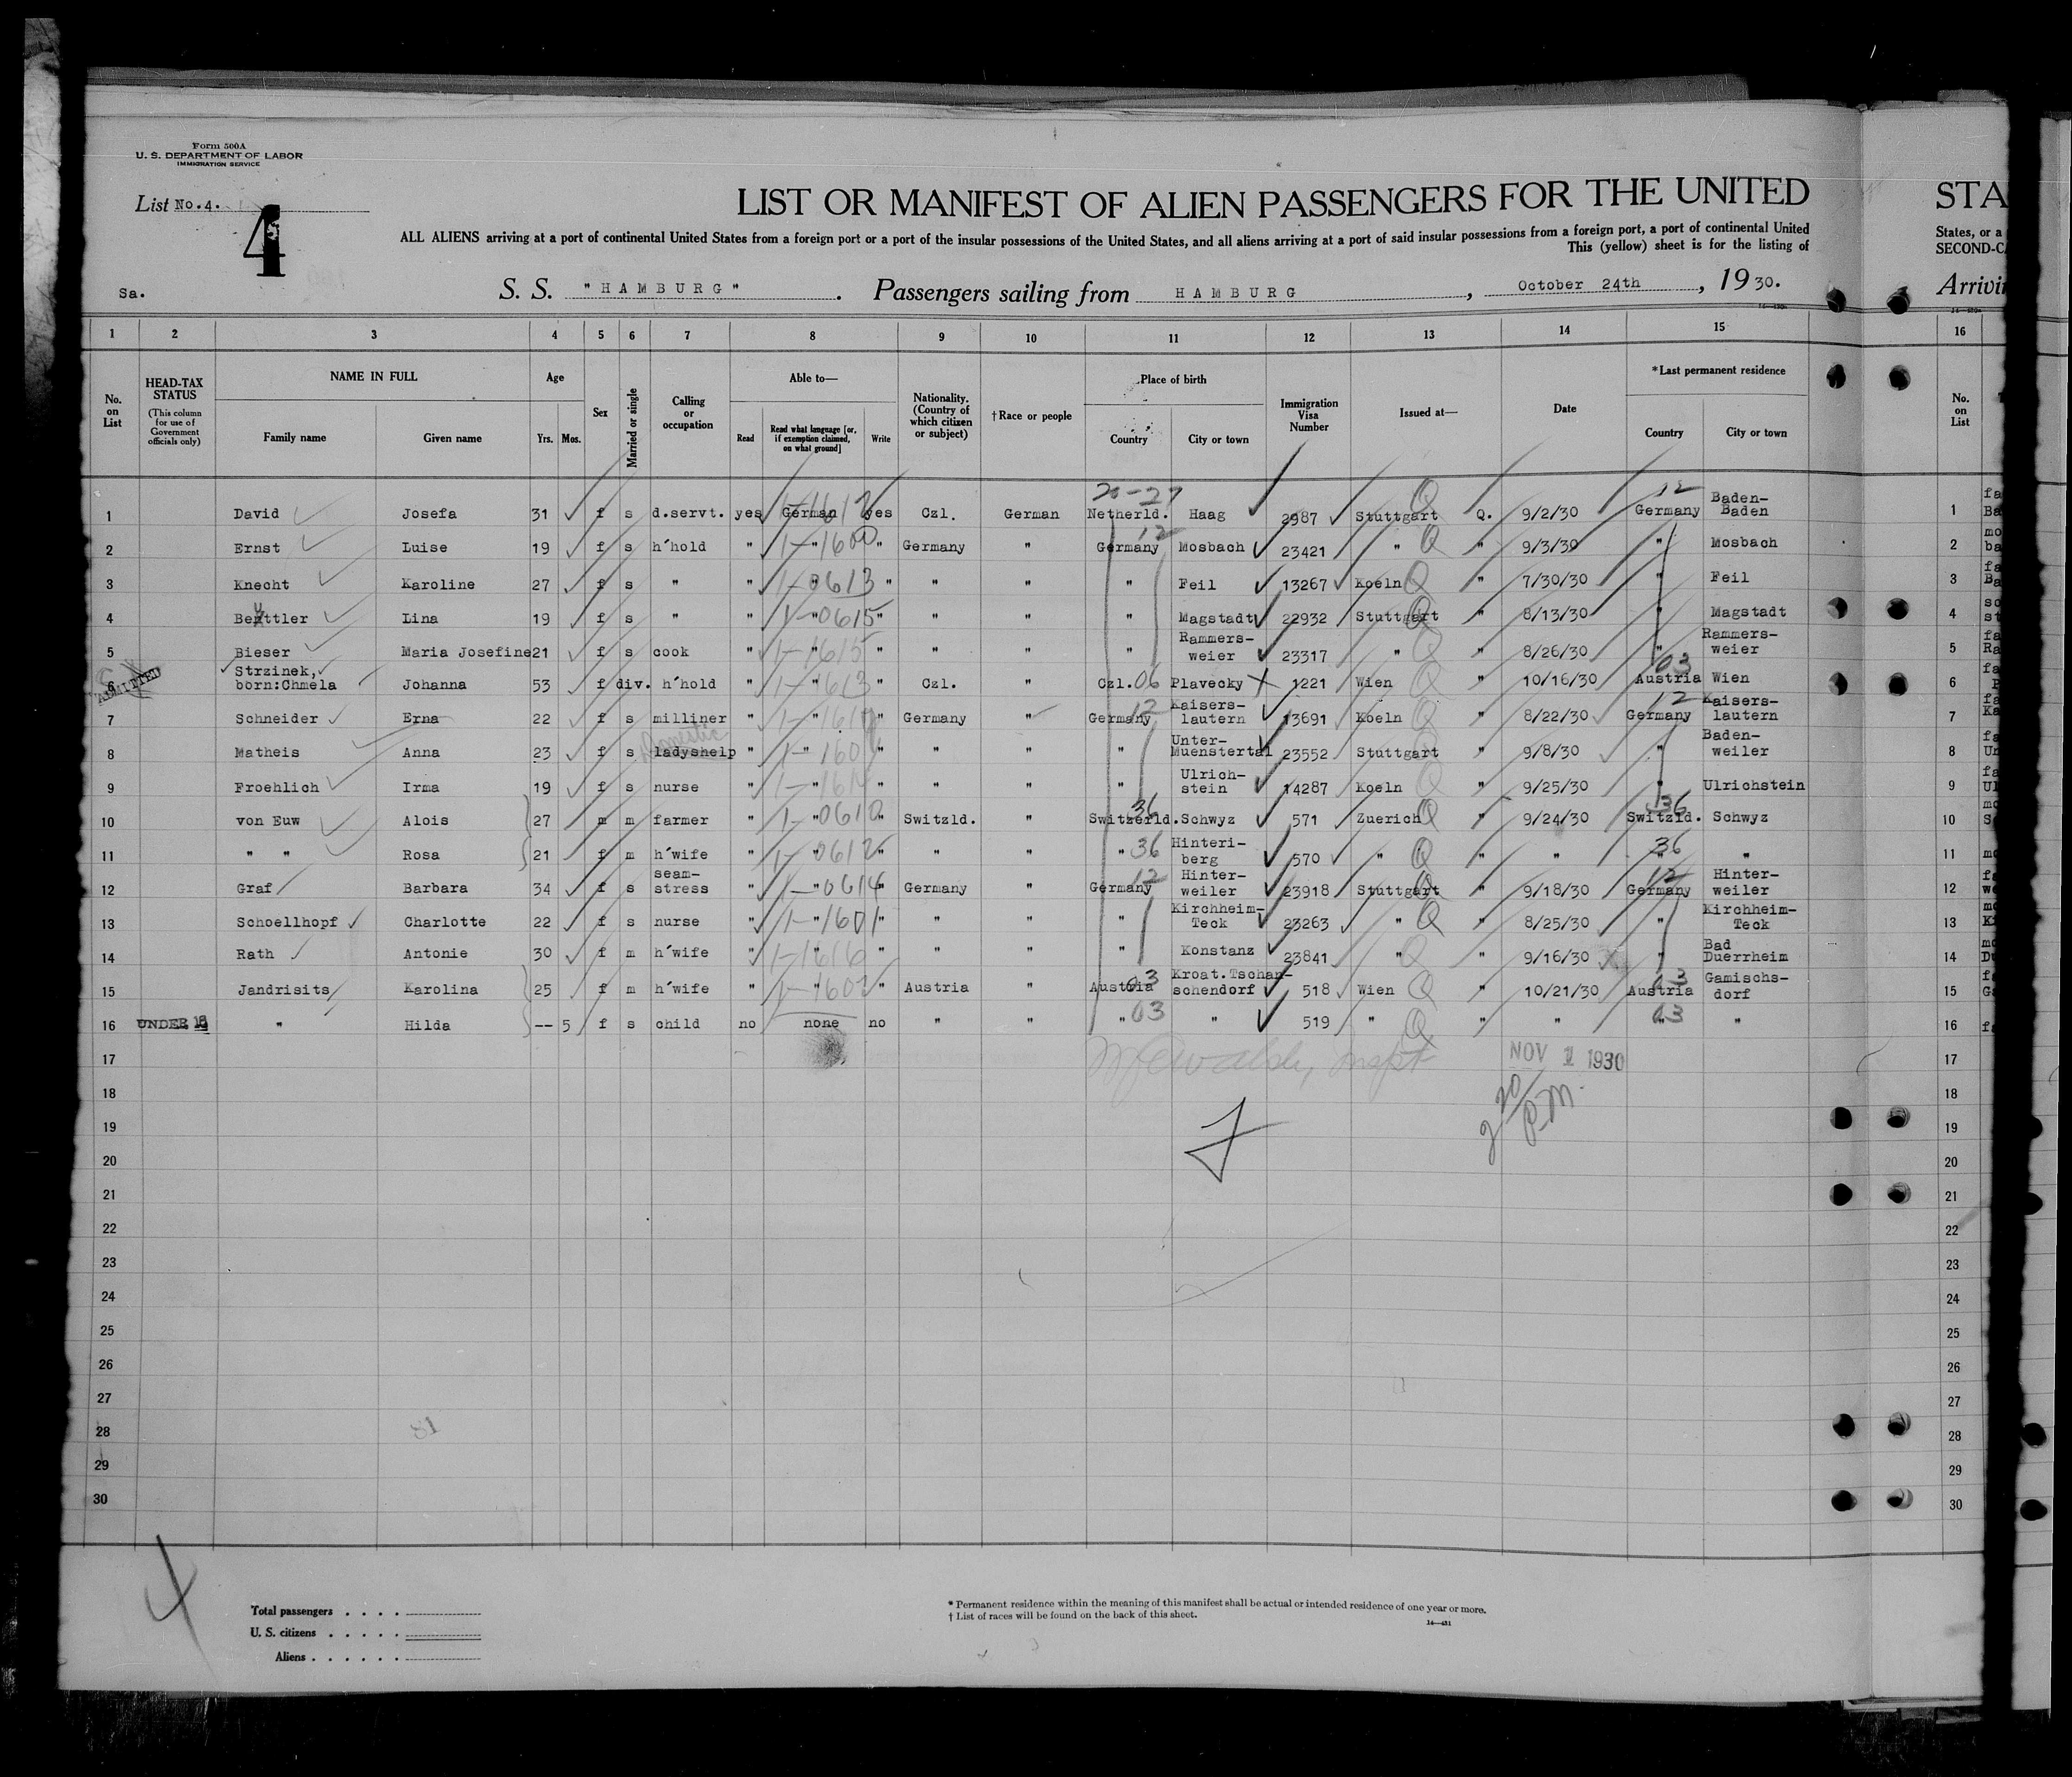 Form 500A
U. S. DEPARTMENT OF LABOR
IMMIGRATION SERVICE
List No.4.
4
LIST OR MANIFEST OF ALIEN PASSENGERS FOR THE UNITED
STA
ALL ALIENS arriving at a port of continental United States from a foreign port or a port of the insular possessions of the United States, and all aliens arriving at a port of said insular possessions from a foreign port, a port of continental United
States, or a
This (yellow) sheet is for the listing of
SECOND-C
Sa. S. S. "HAMBURG". Passengers sailing from HAMBURG, October 24th, 1930.
Arrivi
1 2 3 4 5 6 7 8 9 10 11 12 13 14 15 16
No. on List
HEAD-TAX STATUS (This column for use of Government officials only)
NAME IN FULL Family name Given name
Age Yrs. Mos.
Sex
Married or single
Calling or occupation
Able to— Read Read what language [or, if exemption claimed, on what ground] Write
Nationality. (Country of which citizen or subject)
†Race or people
Place of birth Country City or town
Immigration Visa Number
Issued at—
Date
*Last permanent residence Country City or town
No. on List
1 David Josefa 31 f s d.servt. yes German yes Czl. German Netherld. Haag 2987 Stuttgart Q. 9/2/30 Germany Baden-Baden 1
20-27 12
2 Ernst Luise 19 f s h'hold " " " Germany " Germany Mosbach 23421 " Q " 9/3/30 " Mosbach 2
3 Knecht Karoline 27 f s " " 1-0613 " " " " Feil 13267 Koeln Q " 7/30/30 " Feil 3
4 Beuttler Lina 19 f s " " 1-0615 " " " " Magstadt 22932 Stuttgart Q " 8/13/30 " Magstadt 4
5 Bieser Maria Josefine 21 f s cook " 1-1615 " " " " Rammers-weier 23317 " Q " 8/26/30 " Rammers-weier 5
ADMITTED
6 Strzinek, born:Chmela Johanna 53 f div. h'hold " 1-1613 " Czl. " Czl. 06 Plavecky X 1221 Wien Q " 10/16/30 Austria 03 Wien 6
7 Schneider Erna 22 f s milliner " " " Germany " Germany 12 Kaisers-lautern 13691 Koeln Q " 8/22/30 Germany 12 Kaisers-lautern 7
Domestic
8 Matheis Anna 23 f s ladyshelp " " " " " " Unter-Muenstertal 23552 Stuttgart Q " 9/8/30 " Baden-weiler 8
9 Froehlich Irma 19 f s nurse " " " " " " Ulrich-stein 14287 Koeln Q " 9/25/30 " Ulrichstein 9
10 von Euw Alois 27 m m farmer " " " Switzld. " Switzerld. 36 Schwyz 571 Zuerich Q " 9/24/30 Switzld. 36 Schwyz 10
11 " " Rosa 21 f m h'wife " 1-0612 " " " " 36 Hinteri-berg 570 " Q " " " 36 " 11
12 Graf Barbara 34 f s seam-stress " 1-0614 " Germany " Germany 12 Hinter-weiler 23918 Stuttgart Q " 9/18/30 Germany 12 Hinter-weiler 12
13 Schoellhopf Charlotte 22 f s nurse " 1-1601 " " " " Kirchheim-Teck 23263 " Q " 8/25/30 " Kirchheim-Teck 13
14 Rath Antonie 30 f m h'wife " 1-1616 " " " " Konstanz 23841 " Q " 9/16/30 " Bad Duerrheim 14
15 Jandrisits Karolina 25 f m h'wife " " " Austria " Austria 03 Kroat.Tschan-schendorf 518 Wien Q " 10/21/30 Austria 03 Gamischs-dorf 15
16 UNDER 16 " Hilda -- 5 f s child no none no " " " 03 " 519 " Q " " " 03 " 16
17 NOV 1 1930 17
18 2 20/P.M. 18
19 19
20 20
21 21
22 22
23 23
24 24
25 25
26 26
27 27
28 28
29 29
30 30
4
Total passengers . . . .
U. S. citizens . . . . .
Aliens . . . . . .
* Permanent residence within the meaning of this manifest shall be actual or intended residence of one year or more.
† List of races will be found on the back of this sheet.
14—431